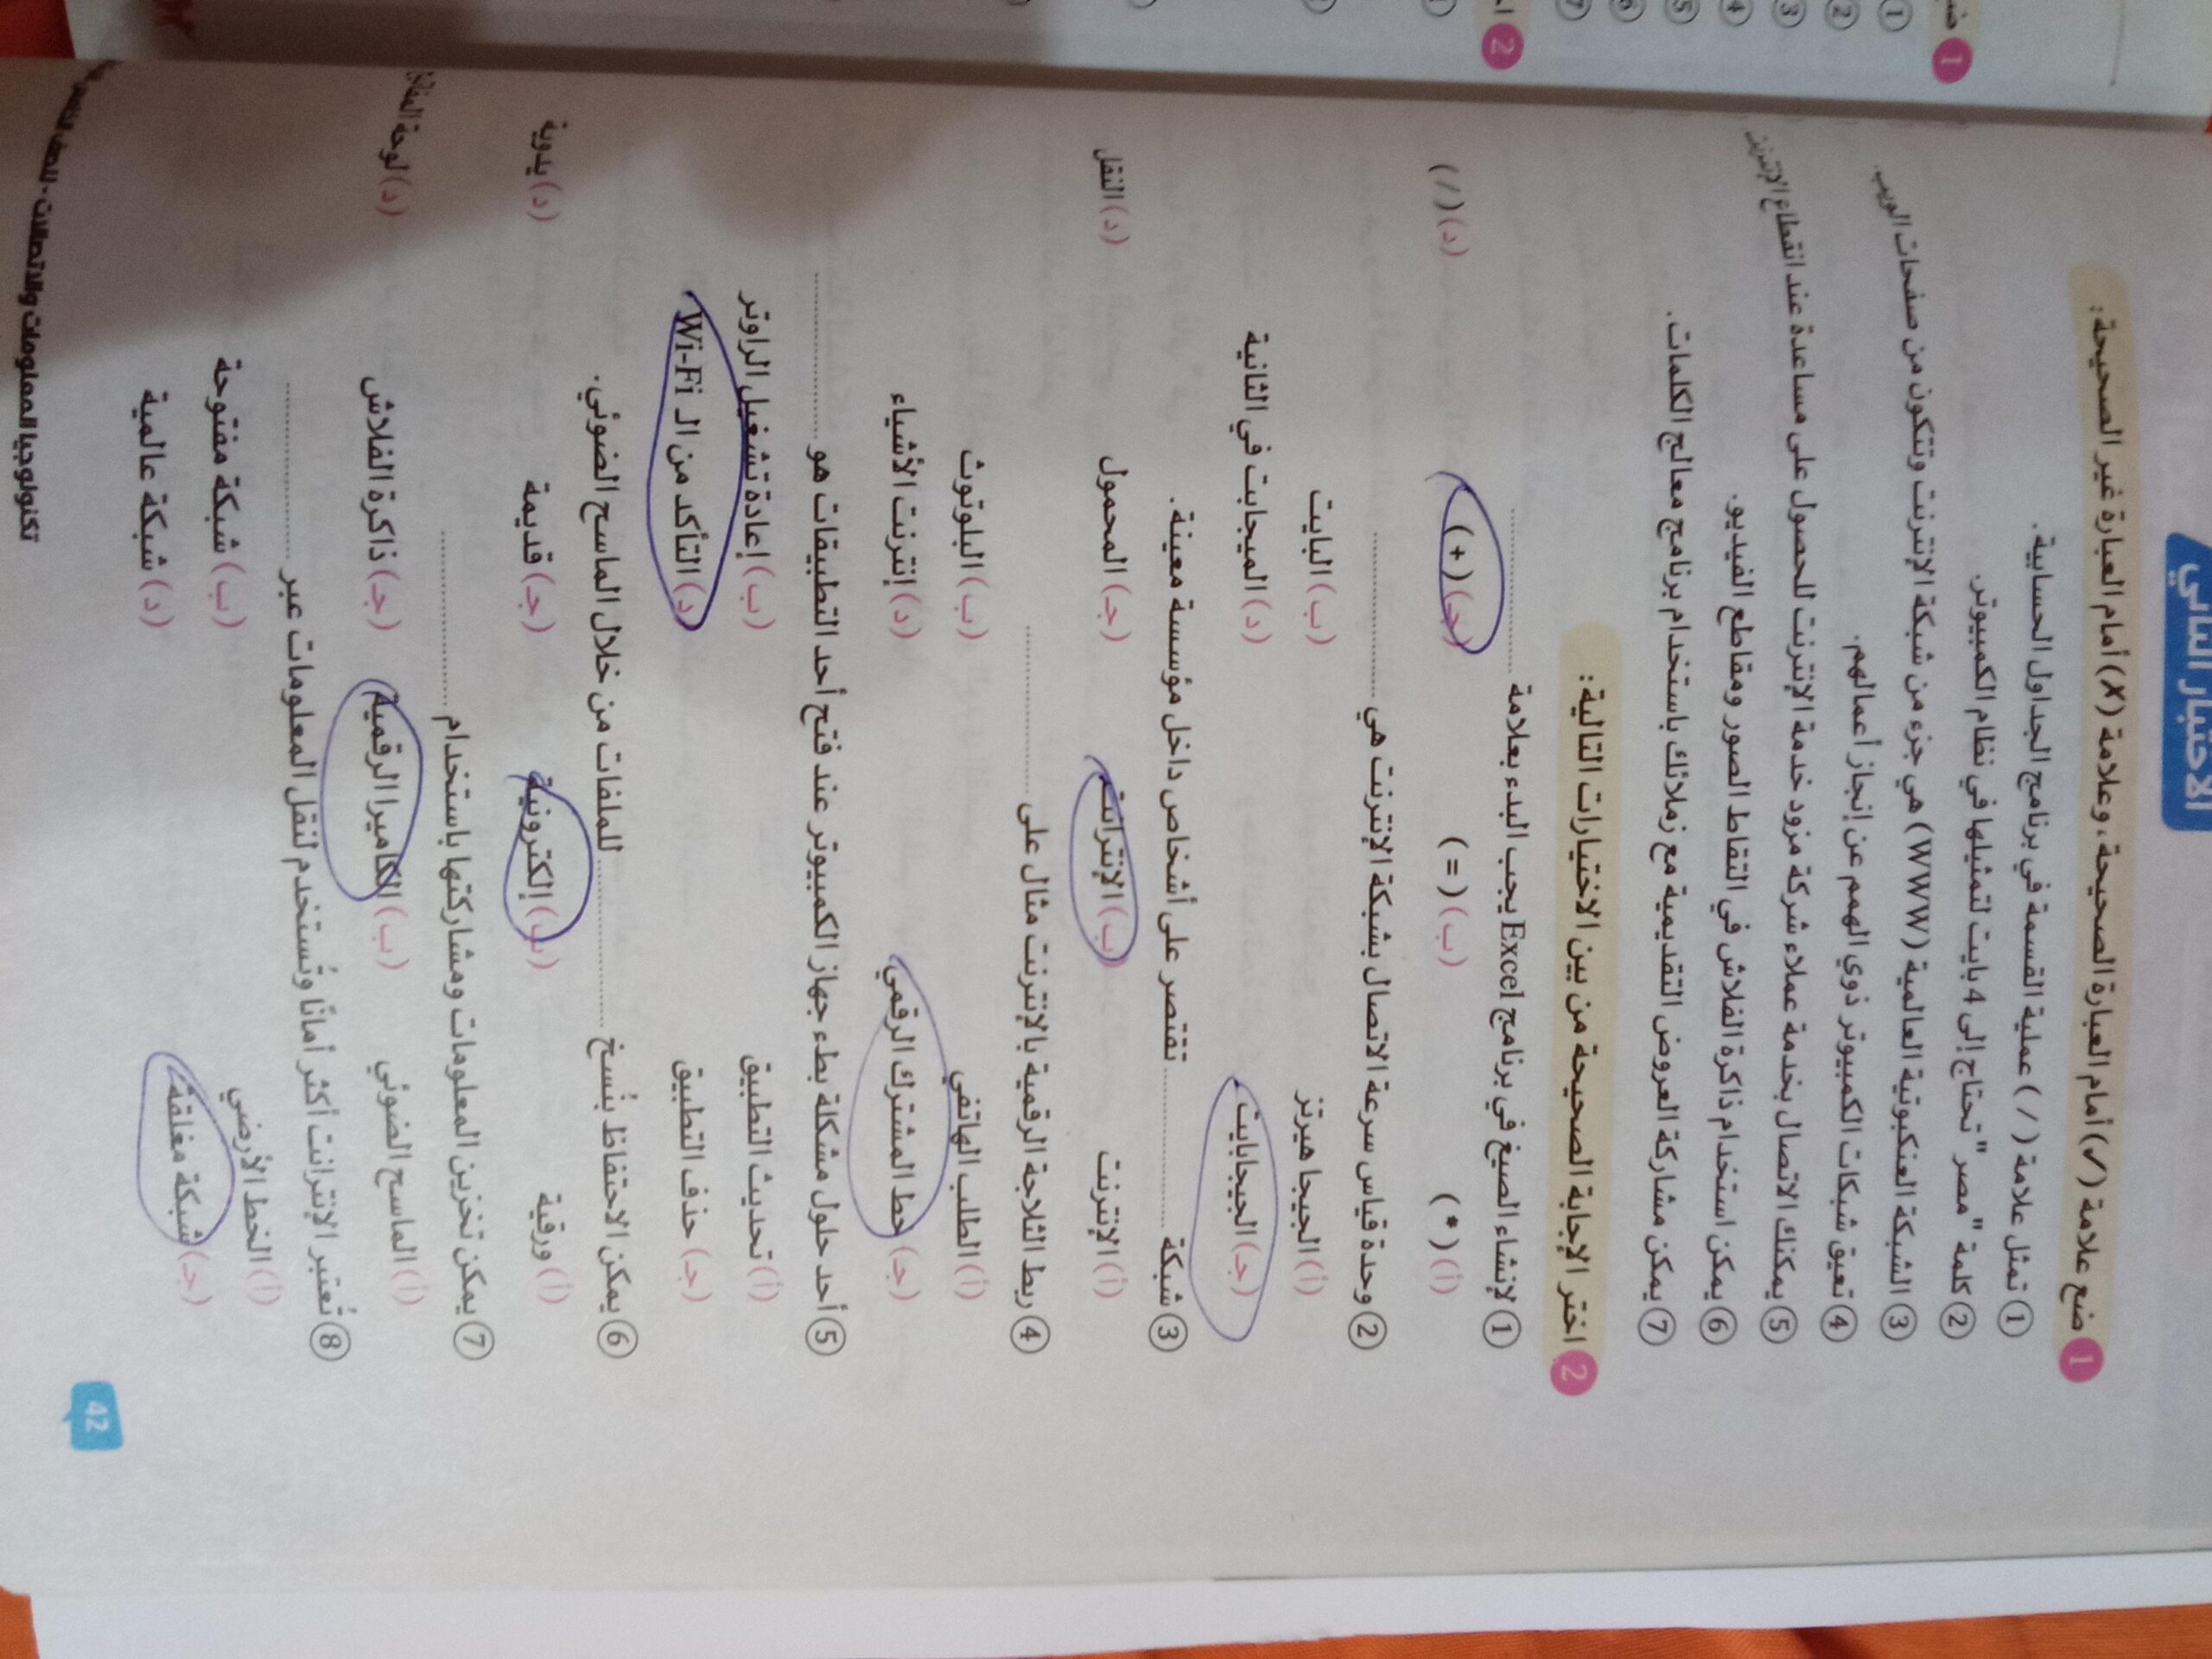 الاختبار الثاني
1 ضع علامة (✓) أمام العبارة الصحيحة، وعلامة (X) أمام العبارة غير الصحيحة:
① تمثل علامة ( / ) عملية القسمة في برنامج الجداول الحسابية.
② كلمة "مصر" تحتاج إلى 4 بايت لتمثيلها في نظام الكمبيوتر.
③ الشبكة العنكبوتية العالمية (WWW) هي جزء من شبكة الإنترنت وتتكون من صفحات الويب.
④ تعيق شبكات الكمبيوتر ذوي الهمم عن إنجاز أعمالهم.
⑤ يمكنك الاتصال بخدمة عملاء شركة مزود خدمة الإنترنت للحصول على مساعدة عند انقطاع الإنترنت.
⑥ يمكن استخدام ذاكرة الفلاش في التقاط الصور ومقاطع الفيديو.
⑦ يمكن مشاركة العروض التقديمية مع زملائك باستخدام برنامج معالج الكلمات.
2 اختر الإجابة الصحيحة من بين الاختيارات التالية:
① لإنشاء الصيغ في برنامج Excel يجب البدء بعلامة ..............
(أ) ( * ) (ب) ( = ) (جـ) ( + ) (د) ( / )
② وحدة قياس سرعة الاتصال بشبكة الإنترنت هي ..............
(أ) الجيجا هيرتز (ب) البايت
(جـ) الجيجابايت (د) الميجابت في الثانية
③ شبكة .............. تقتصر على أشخاص داخل مؤسسة معينة.
(أ) الإنترنت (ب) الإنترانت (جـ) المحمول (د) النقل
④ ربط الثلاجة الرقمية بالإنترنت مثال على ..............
(أ) الطلب الهاتفي (ب) البلوتوث
(جـ) خط المشترك الرقمي (د) إنترنت الأشياء
⑤ أحد حلول مشكلة بطء جهاز الكمبيوتر عند فتح أحد التطبيقات هو ..............
(أ) تحديث التطبيق (ب) إعادة تشغيل الراوتر
(جـ) حذف التطبيق (د) التأكد من الـ Wi-Fi
⑥ يمكن الاحتفاظ بنُسخ .............. للملفات من خلال الماسح الضوئي.
(أ) ورقية (ب) إلكترونية (جـ) قديمة (د) يدوية
⑦ يمكن تخزين المعلومات ومشاركتها باستخدام ..............
(أ) الماسح الضوئي (ب) الكاميرا الرقمية (جـ) ذاكرة الفلاش (د) لوحة
⑧ تُعتبر الإنترانت أكثر أمانًا وتُستخدم لنقل المعلومات عبر ..............
(أ) الخط الأرضي (ب) شبكة مفتوحة
(جـ) شبكة مغلقة (د) شبكة عالمية
42
تكنولوجيا المعلومات والاتصالات - للصف